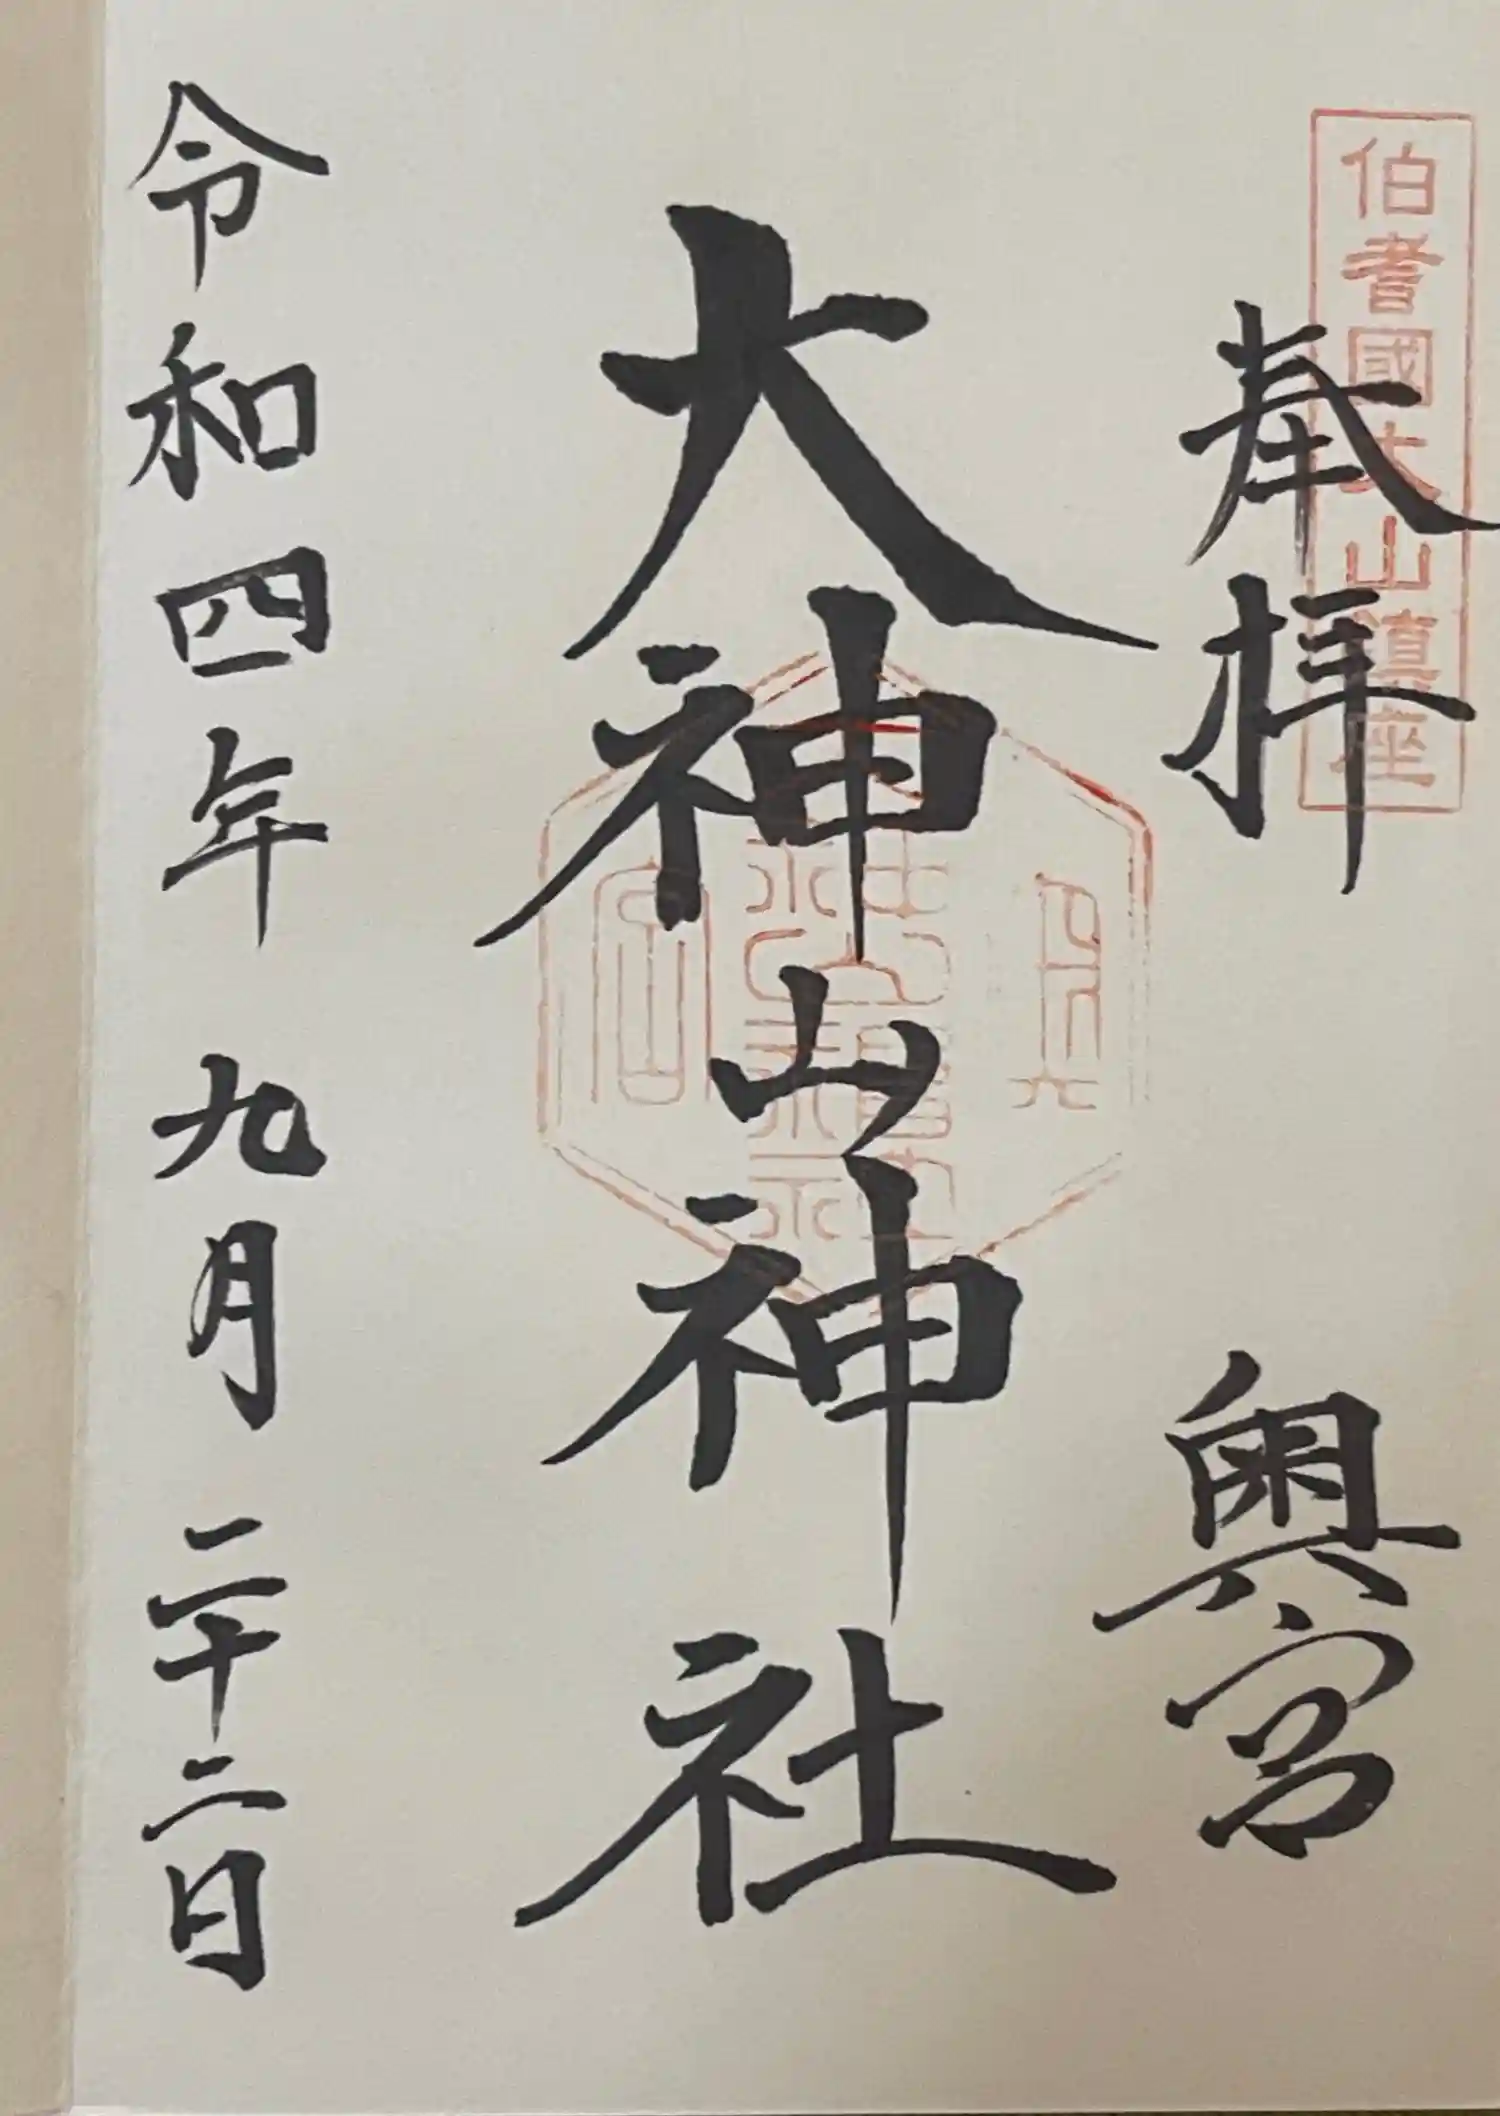 伯耆國大山鎮座
奉拝
奥宮
大神山神社
令和四年 九月 二十二日